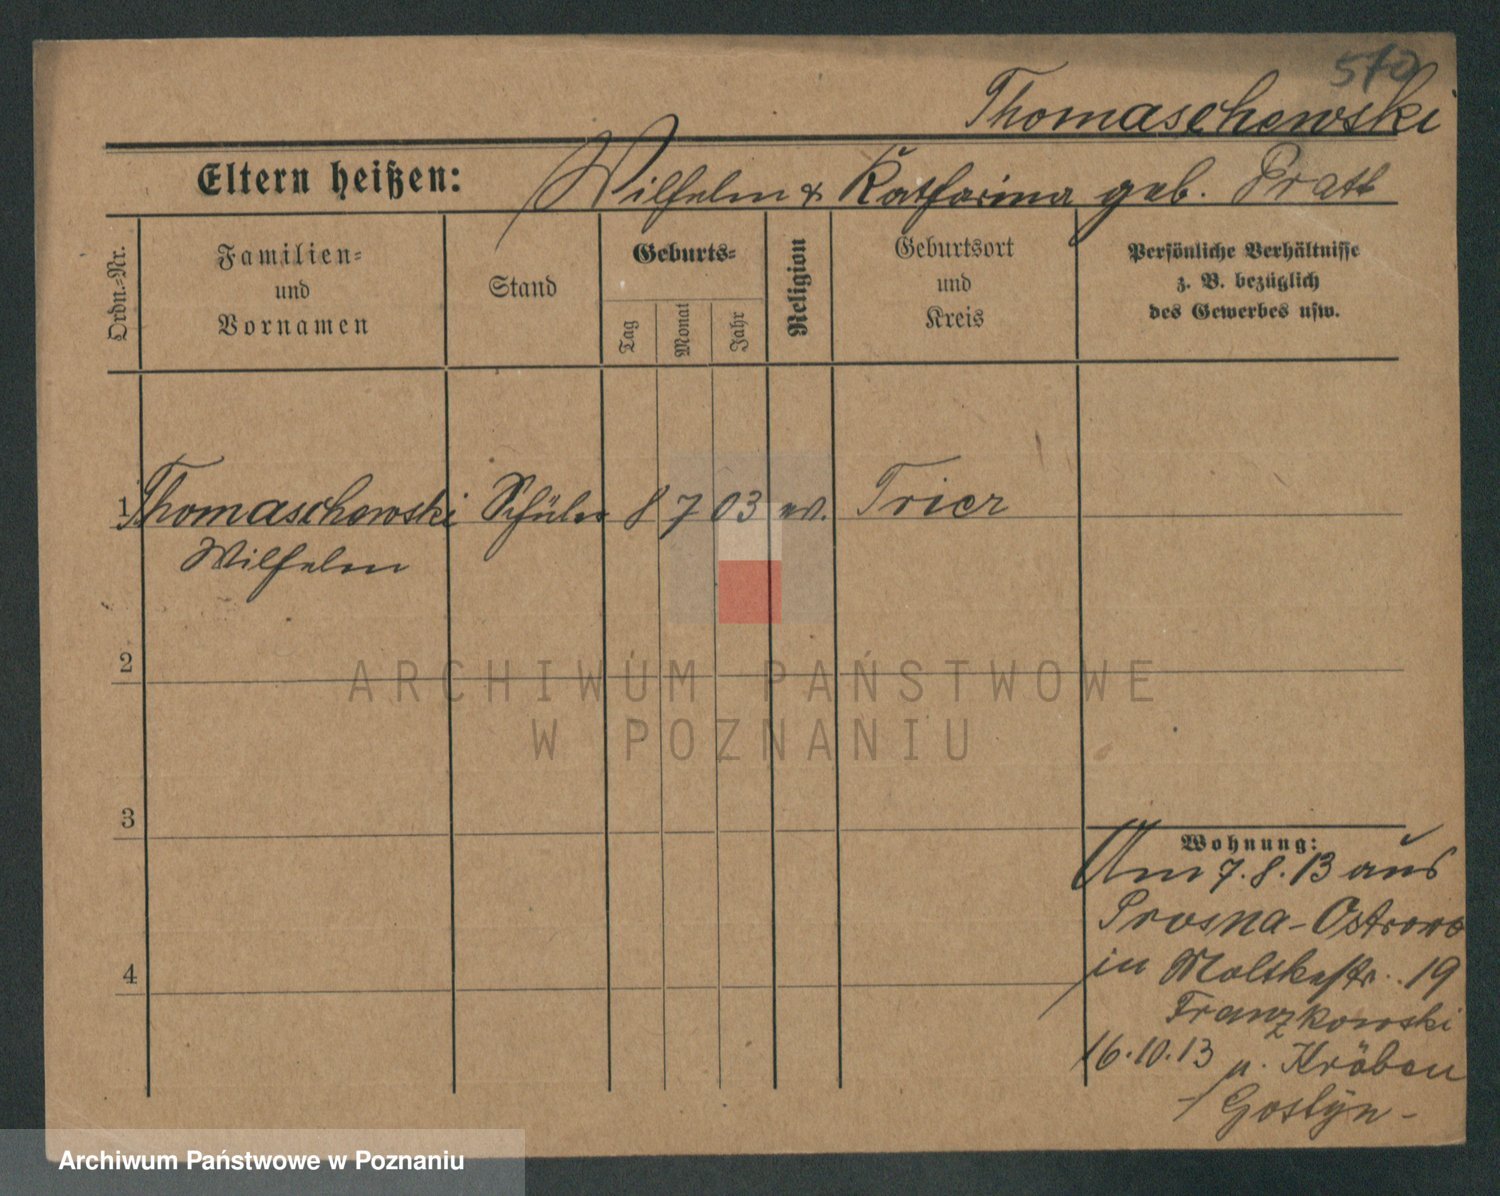 570
Thomaschewski
Eltern heißen: Wilhelm & Katharina geb. Pratt
Ordn.-Nr.
Familien- und Vornamen
Stand
Geburts-
Tag
Monat
Jahr
Religion
Geburtsort und Kreis
Persönliche Verhältnisse
z. B. bezüglich
des Gewerbes usw.
1 Thomaschewski Schüler 8 7 03 ev. Trier
Wilhelm
2
ARCHIWUM PAŃSTWOWE
W POZNANIU
3
4
Wohnung:
Am 7.8.13 aus
Prosna-Ostrowo
in Moltkestr. 19
Franzkowski
16.10.13 n. Kröben
/ Goslyn -
Archiwum Państwowe w Poznaniu